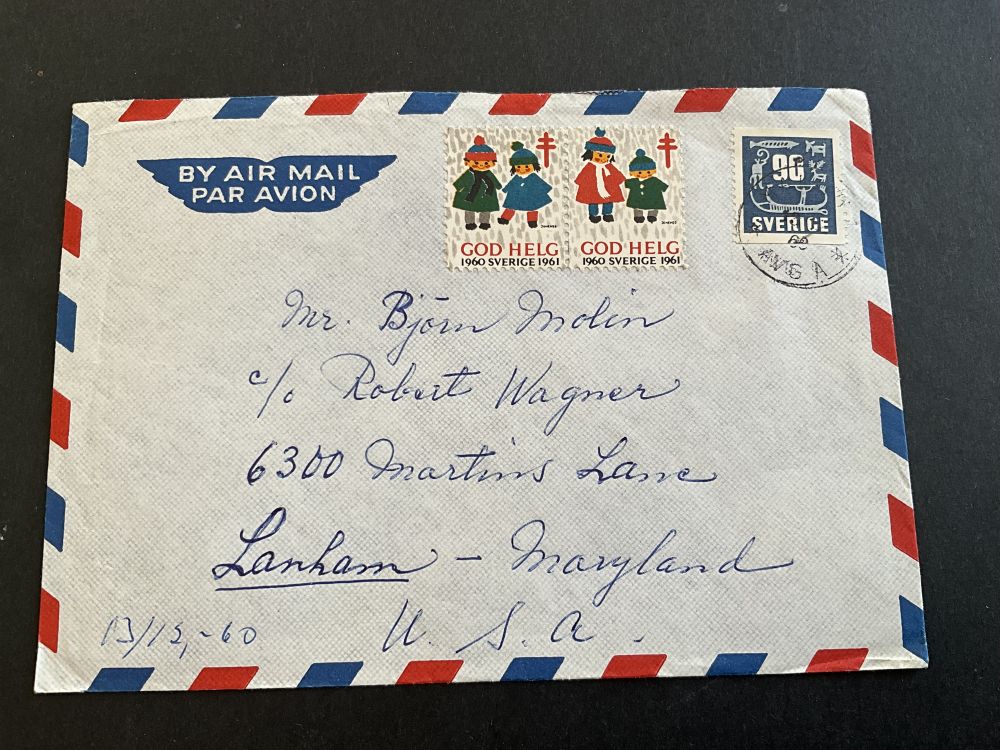 BY AIR MAIL
PAR AVION
GOD HELG
1960 SVERIGE 1961
GOD HELG
1960 SVERIGE 1961
90
SVERIGE
60
Mr. Björn Molin
c/o Robert Wagner
6300 Martins Lane
Lanham - Maryland
U. S. A.
13/12,-60